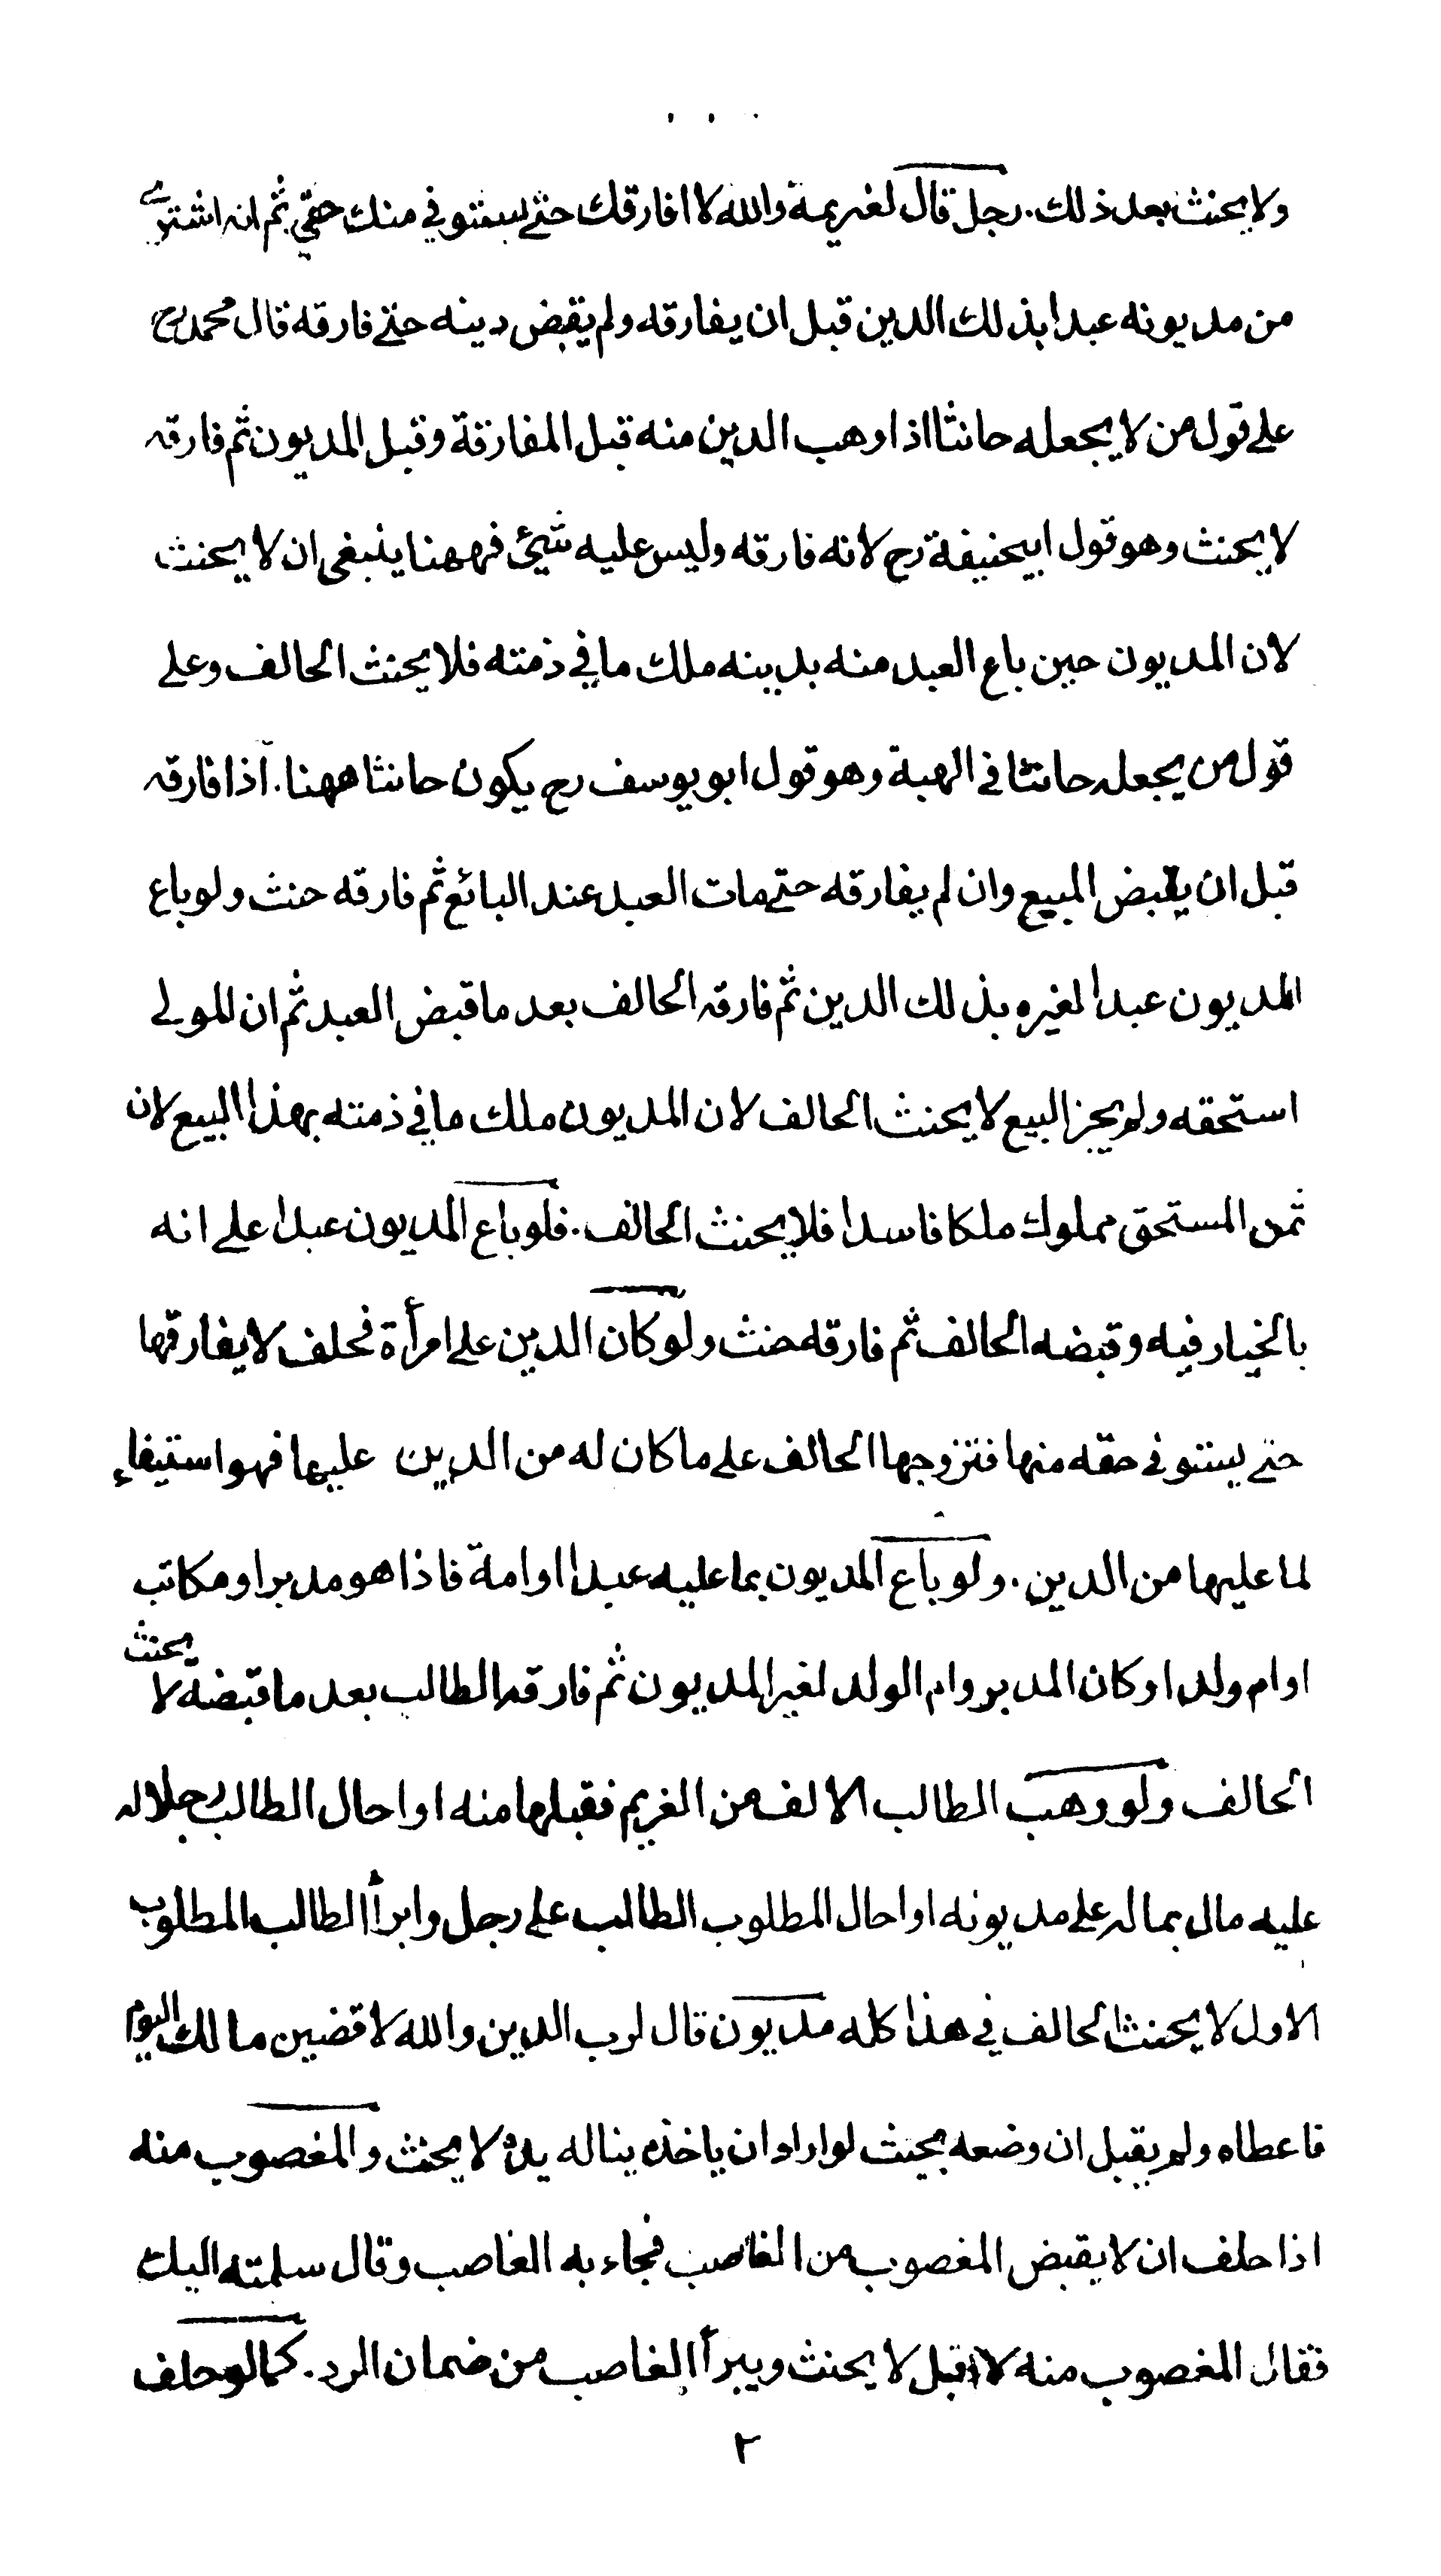 ولا يحنث بعد ذلك. رجل قال لغريمة والله لا افارقك حتى يستوفي منك حقي ثم انه اشترى
من مديونه عبدا بذلك الدين قبل ان يفارقه ولم يقبض دينه حتى فارقه قال محمد رح
على قول من لا يجعله حانثا اذا وهب الدين منه قبل المفارقة وقبل المديون ثم فارقه
لا يحنث وهو قول ابيحنيفة رح لانه فارقه وليس عليه شيئ فههنا ينبغي ان لا يحنث
لان المديون حين باع العبد منه بدينه ملك ما في ذمته فلا يحنث الحالف وعلى
قول من يجعله حانثا في الهبة وهو قول ابو يوسف رح يكون حانثا ههنا. اذا فارقه
قبل ان يقبض المبيع وان لم يفارقه حتى مات العبد عند البائع ثم فارقه حنث ولو باع
المديون عبدا لغيره بذلك الدين ثم فارقه الحالف بعد ما قبض العبد ثم ان المولى
استحقه ولم يجز البيع لا يحنث الحالف لان المديون ملك ما في ذمته بهذا البيع لان
ثمن المستحق مملوك ملكا فاسدا فلا يحنث الحالف. فلو باع المديون عبدا على انه
بالخيار فيه وقبضه الحالف ثم فارقه حنث ولو كان الدين على امرأة فحلف لا يفارقها
حتى يستوفي حقه منها فتزوجها الحالف على ما كان له من الدين عليها فهو استيفاء
لما عليها من الدين. ولو باع المديون بما عليه عبدا او امة فاذا هو مدبر او مكاتب
او ام ولد او كان المدبر وام الولد لغير المديون ثم فارقه الطالب بعد ما قبضه لا يحنث
الحالف ولو وهب الطالب الالف من الغريم فقبلها منه او احال الطالب رجلا له
عليه مال بماله على مديونه او احال المطلوب الطالب على رجل وابرأ الطالب المطلوب
الاول لا يحنث الحالف في هذا كله مديون قال لرب الدين والله لاقضين مالك اليوم
فاعطاه ولم يقبل ان وضعه بحيث لو اراد ان ياخذه يناله يده لا يحنث والمغصوب منه
اذا حلف ان لا يقبض المغصوب من الغاصب فجاء به الغاصب وقال سلمته اليك
فقال المغصوب منه لا اقبل لا يحنث ويبرأ الغاصب من ضمان الرد. كما لو حلف
٢